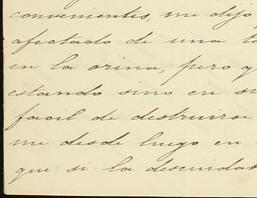 convenientes, me dijo
afectado de una
en la orina, pero q
estando sino en su
facil de destruirse
me desde luego en
que si la descuidas